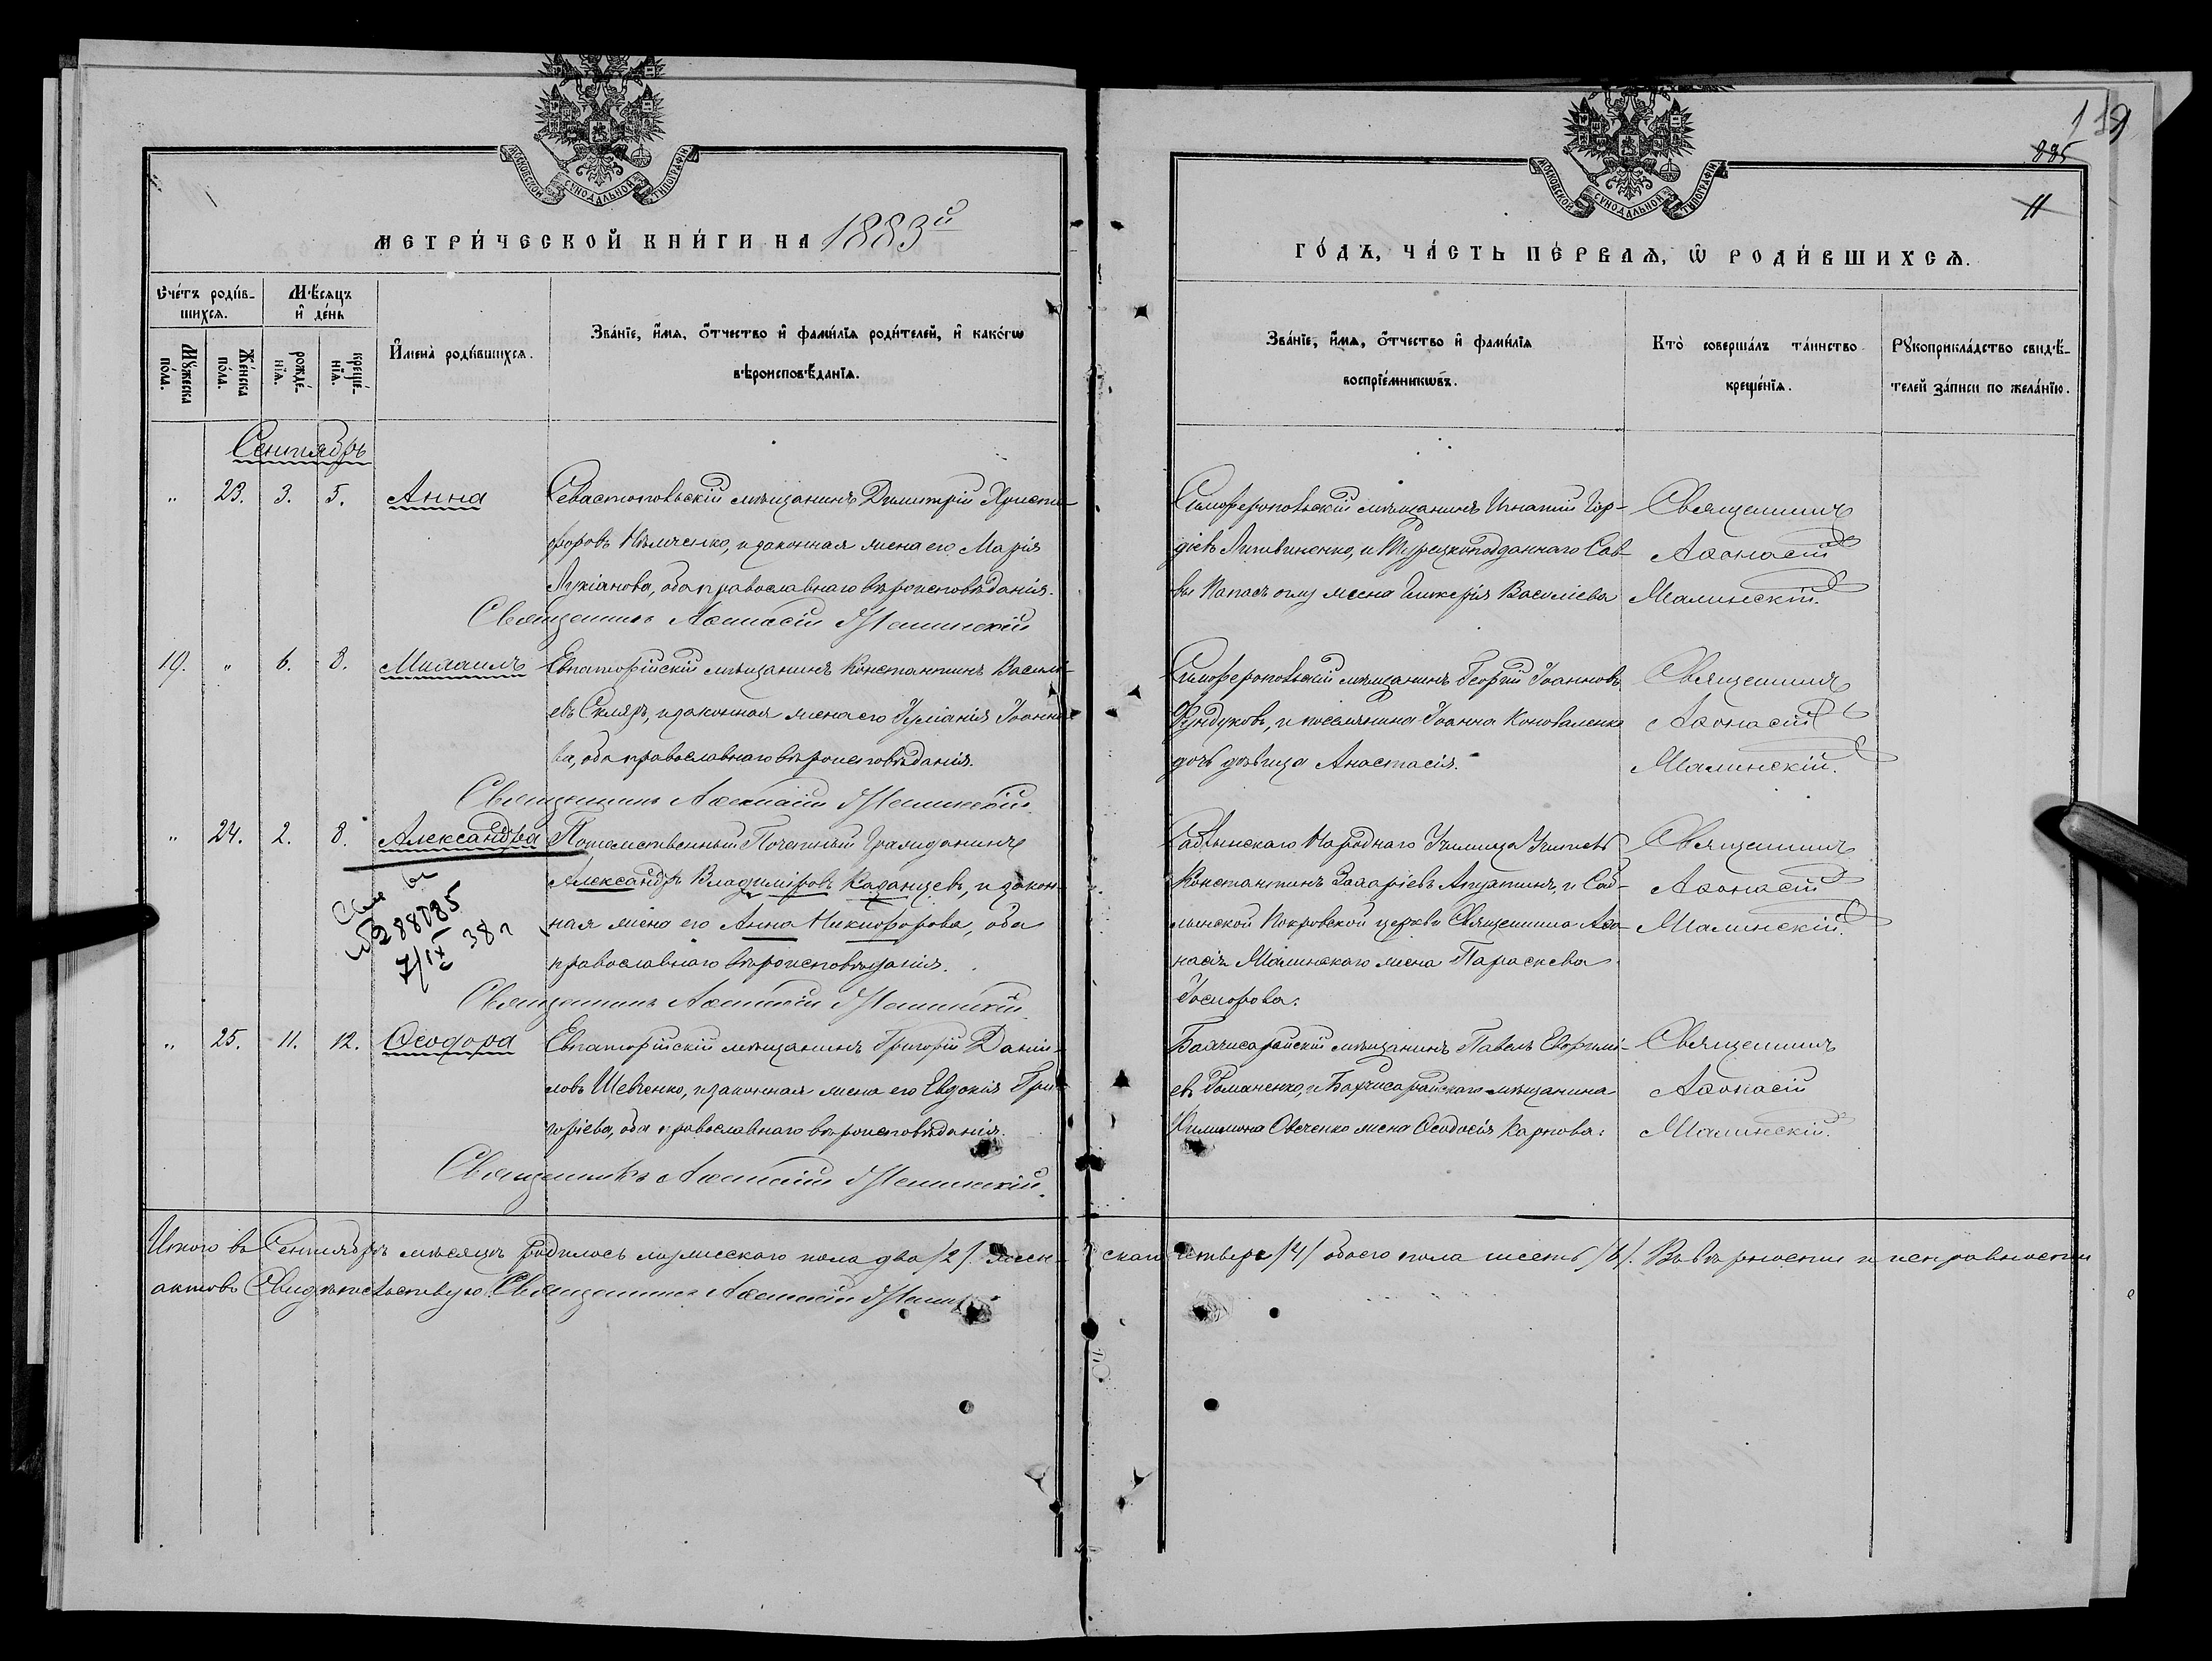 119
885
11
МОСКОВСКОЙ СѴНОДАЛЬНОЙ ТИПОГРАФІИ
МЕТРИ́ЧЕСКОЙ КНИ́ГИ НА 1883й
Сче́тъ роди́в-
шихсѧ.
Мѣ́сѧцъ
и҆ де́нь
Мꙋ́жеска
по́ла.
Же́нска
по́ла.
рожде́-
нїѧ.
креще́-
нїѧ.
И҆мена̀ роди́вшихсѧ.
Зва́нїе, и҆́мѧ, ѻ҆́тчество и҆ фами́лїѧ роди́телей, и҆ како́гѡ
вѣроисповѣ́данїѧ.
Сентябрь
„ 23. 3. 5. Анна
Севастопольскій мѣщанинъ Димитрій Христо-
форовъ Нѣмченко, и законная жена его Марія
Лукіанова, оба православнаго вѣроисповѣданія.
Священникъ Аѳанасій Малинскій
19. „ 6. 8. Михаилъ
Евпаторійскій мѣщанинъ Константинъ Василі-
евъ Скляръ, и законная жена его Іуліанія Іоанно-
ва, оба православнаго вѣроисповѣданія.
Священникъ Аѳанасій Малинскій
„ 24. 2. 8. Александра
Потомственный Почетный Гражданинъ
Александръ Владиміровъ Казанцевъ, и закон-
ная жена его Анна Никифорова, оба
православнаго вѣроисповѣданія.
288085
7/IX 38 г
Священникъ Аѳанасій Малинскій
„ 25. 11. 12. Ѳеодора
Евпаторійскій мѣщанинъ Григорій Даніи-
ловъ Шевченко, и законная жена его Евдокія Гри-
горіева, оба православнаго вѣроисповѣданія.
Священникъ Аѳанасій Малинскій.
МОСКОВСКОЙ СѴНОДАЛЬНОЙ ТИПОГРАФІИ
ГО́ДЪ, ЧА́СТЬ ПЕ́РВАѦ, Ѡ҆ РОДИ́ВШИХСѦ.
Зва́нїе, и҆́мѧ, ѻ҆́тчество и҆ фами́лїѧ
воспрїе́мникѡвъ.
Кто̀ соверша́лъ та́инство
креще́нїѧ.
Рꙋкоприкла́дство свидѣ́-
телей за́писи по жела́нїю.
Симферопольскій мѣщанинъ Игнатій Гор-
діевъ Литвиненко, и Турецкоподданнаго Сав-
вы Папасъ оглу жена Гликерія Василіева
Священникъ
Аѳанасій
Малинскій.
Симферопольскій мѣщанинъ Георгій Іоанновъ
Фундуковъ, и поселянина Іоанна Коноваленко
дочь дѣвица Анастасія.
Священникъ
Аѳанасій
Малинскій.
Саблынскаго Народнаго Училища Учитель
Константинъ Захаріевъ и Саб-
лынской Покровской церкви Священника Аѳа-
насія Малинскаго жена Параскева
Священникъ
Аѳанасій
Малинскій.
Бахчисарайскій мѣщанинъ Павелъ Евфимі-
евъ Романенко, и Бахчисарайскаго мѣщанина
Филимона Овсченко жена Ѳеодосія Карпова.
Священникъ
Аѳанасій
Малинскій.
Итого въ Сентябрѣ мѣсяцѣ родилось мужескаго пола два /2/. Жен- скаго четыре /4/ обоего пола шесть /6/. Въ вѣрности и исправности
актовъ Свидѣтельствую Священникъ Аѳанасій Малинскій